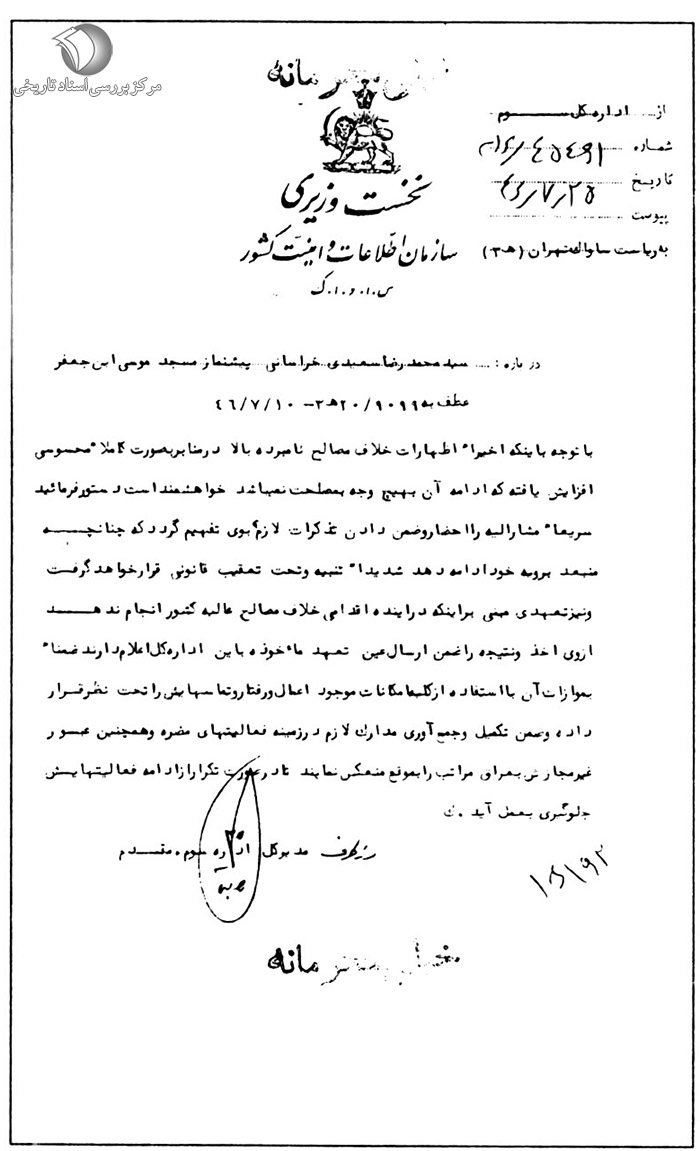 مرکز بررسی اسناد تاریخی
خیلی محرمانه
از اداره کل سوم
شماره
تاریخ ۴۶/۷/۲۵
پیوست
نخست وزیری
سازمان اطلاعات و امنیت کشور
س.ا.و.ا.ک
به ریاست ساواک تهران (ه۳)
درباره : سید محمد رضا سعیدی خراسانی پیشنماز مسجد موسی ابن جعفر
عطف به ۹۰۹۹/ ۲۰ه۳ - ۴۶/۷/۱۰
با توجه باینکه اخیرا" اظهارات خلاف مصالح نامبرده بالا در منابر بصورت کاملا" محسوسی
افزایش یافته که ادامه آن بهیچ وجه بمصلحت نمیباشد خواهشمند است دستور فرمائید
سریعا" مشارالیه را احضار و ضمن دادن تذکرات لازم بوی تفهیم گردد که چنانچه
منبعد برویه خود ادامه دهد شدیدا" تنبیه و تحت تعقیب قانونی قرار خواهد گرفت
و نیز تعهدی مبنی بر اینکه در آینده اقدامی خلاف مصالح عالیه کشور انجام ندهد
از وی اخذ و نتیجه را ضمن ارسال عین تعهد ماخوذه باین اداره کل اعلام دارند ضمنا"
بموازات آن با استفاده از کلیه امکانات موجود اعمال و رفتار و تماسهایش را تحت نظر قرار
داده و ضمن تکمیل و جمع آوری مدارک لازم در زمینه فعالیتهای مضره و همچنین عبور
غیر مجازش بعراق مراتب را بموقع منعکس نمایند تا در صورت تکرار از ادامه فعالیتهایش
جلوگیری بعمل آید . ک
مدیر کل اداره سوم . مقدم
خیلی محرمانه